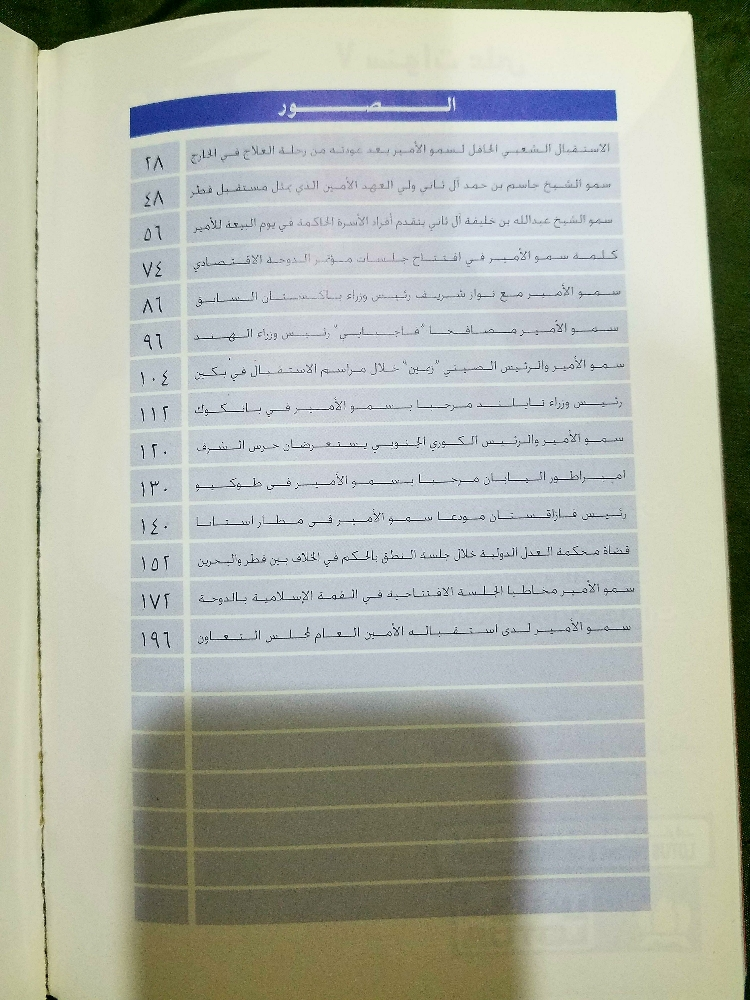 الصور
الاستقبال الشعبي الحافل لسمو الأمير بعد عودته من رحلة العلاج في الخارج ٢٨
سمو الشيخ جاسم بن حمد آل ثاني ولي العهد الأمين الذي يمثل مستقبل قطر ٤٨
سمو الشيخ عبدالله بن خليفة آل ثاني يتقدم أفراد الأسرة الحاكمة في يوم البيعة للأمير ٥٦
كلمة سمو الأمير في افتتاح جلسات مؤتمر الدوحة الاقتصادي ٧٤
سمو الأمير مع نواز شريف رئيس وزراء باكستان السابق ٨٦
سمو الأمير مصافحا "فاجبايي" رئيس وزراء الهند ٩٦
سمو الأمير والرئيس الصيني "زمين" خلال مراسم الاستقبال في بكين ١٠٤
رئيس وزراء تايلند مرحبا بسمو الأمير في بانكوك ١١٢
سمو الأمير والرئيس الكوري الجنوبي يستعرضان حرس الشرف ١٢٠
امبراطور اليابان مرحبا بسمو الأمير في طوكيو ١٣٠
رئيس قازاقستان مودعا سمو الأمير في مطار استانا ١٤٠
قضاة محكمة العدل الدولية خلال جلسة النطق بالحكم في الخلاف بين قطر والبحرين ١٥٢
سمو الأمير مخاطبا الجلسة الافتتاحية في القمة الإسلامية بالدوحة ١٧٢
سمو الأمير لدى استقباله الأمين العام لمجلس التعاون ١٩٦